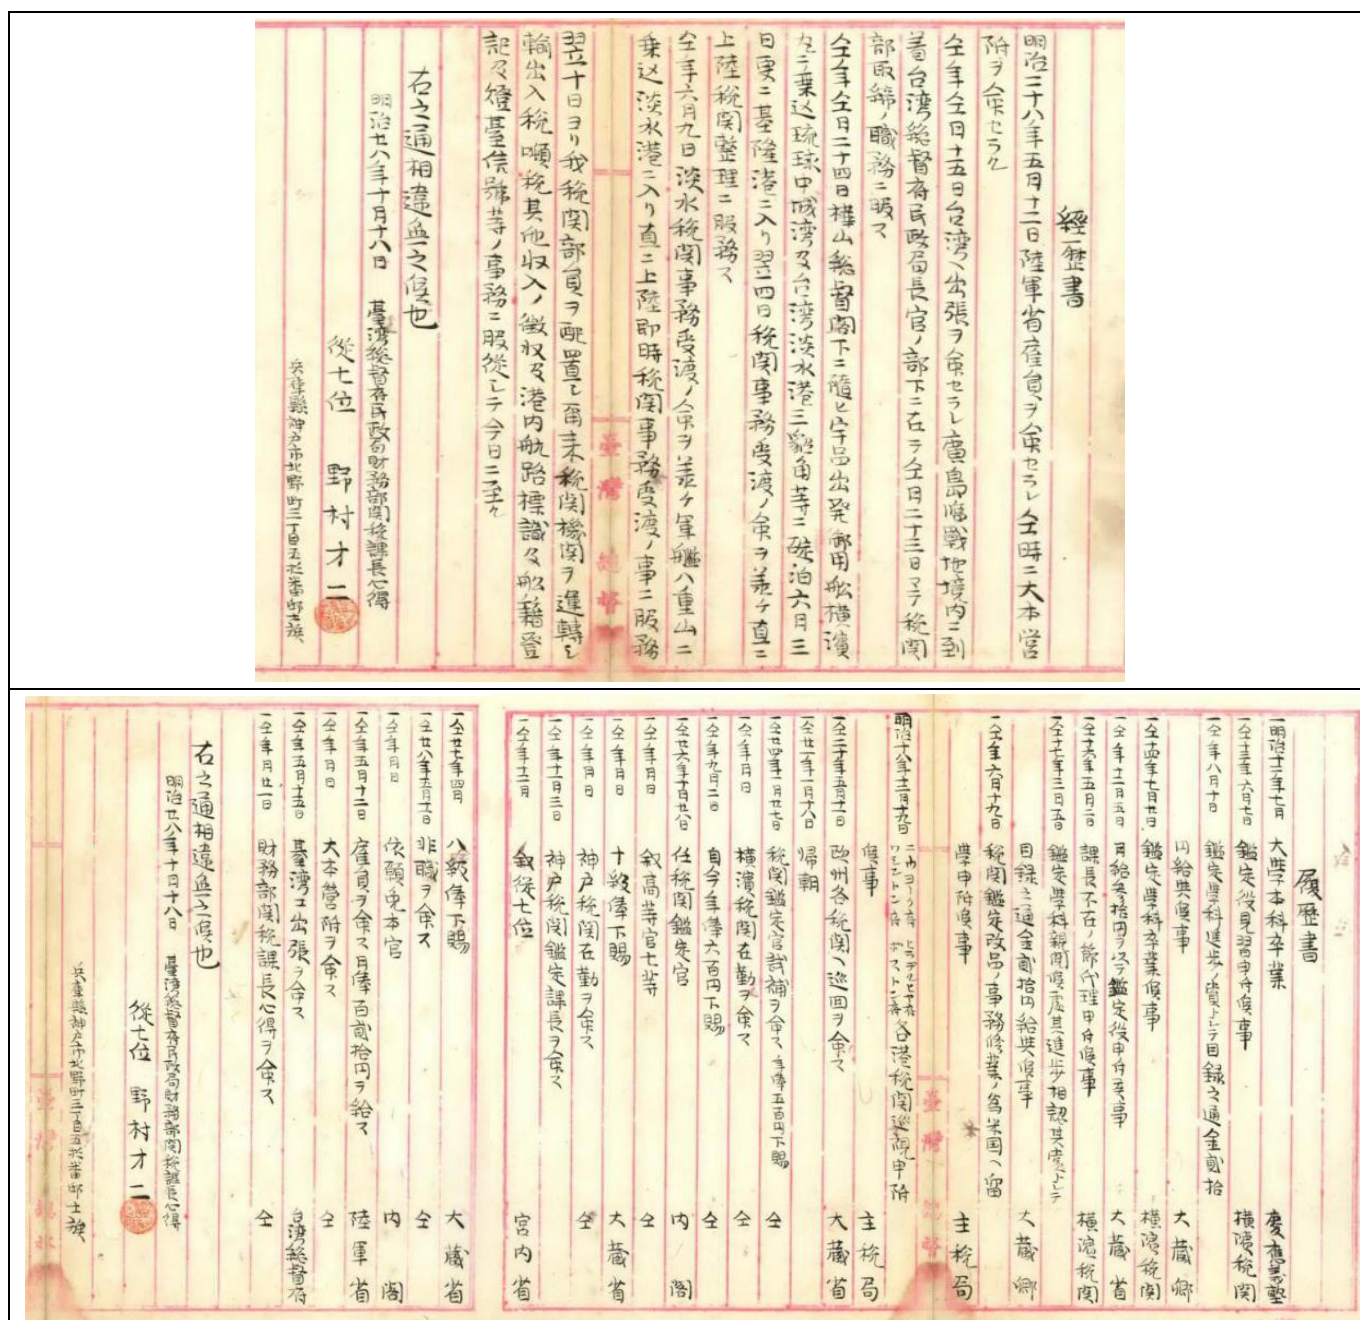 經歴書
明治二十八年五月十二日陸軍省雇員ヲ命セラレ仝時ニ大本営
附ヲ命セラル
仝年仝月十五日台湾ヘ出張ヲ命セラレ廣島旧戰地境内ニ到
着台湾総督府民政局長官ノ部下ニ在テ仝月二十三日マテ税関
部取締ノ職務ニ服ス
仝年仝月二十四日樺山総督閣下ニ随ヒ宇品出発御用船横濱
丸ニテ乗込琉球中城湾及台湾淡水港三貂角等ニ碇泊六月三
日更ニ基隆港ニ入リ翌四日税関事務受渡ノ命ヲ差ケ直ニ
上陸税関整理ニ服務ス
仝年六月九日淡水税関事務受渡ノ命ヲ差ケ軍艦八重山ニ
乗込淡水港ニ入リ直ニ上陸即時税関事務受渡ノ事ニ服務
翌十日ヨリ我税関部員ヲ配置シ爾来税関機関ヲ運轉シ
輸出入税噸税其他収入ノ徴収及港内航路標識及船籍登
記及燈臺信號等ノ事務ニ服從シテ今日ニ至ル
右之通相違無之候也
明治廿八年十月十八日 臺湾総督府民政局財務部関税課長心得
從七位 野村才二
兵庫縣神戸市北野町三丁目五拾番邸士族
臺灣總督
履歴書
一明治十二年七月 大學本科卒業 慶應義塾
一仝十三年六月七日 鑑定役見習申付候事 横濱税関
一仝年八月十日 鑑定學科進歩ノ賞トシテ目録之通金貳拾
円給與候事 大藏卿
一仝十四年七月廿日 鑑定學科卒業候事 横濱税関
一仝年十二月五日 月給参拾円ヲ以テ鑑定役申付候事 大藏省
一仝十六年五月二日 課長不在ノ節代理申付候事 横濱税関
一仝十七年三月五日 鑑定學科親閲候處其進歩相認其賞トシテ
目録之通金貳拾円給與候事 大藏卿
一仝年六月十九日 税関鑑定改品ノ事務修業ノ為米国ヘ留
學申附候事 主税局
明治十八年十二月十九日 ニウヨーク府 ヒラデルヒヤ府 ワシントン府 ボストン府 各港税関巡視申附
候事 主税局
一仝二十年五月十一日 欧州各税関ヘ巡回ヲ命ス 大藏省
一仝廿一年一月十六日 帰朝
一仝廿四年一月廿七日 税関鑑定官試補ヲ命ス年俸五百円下賜 仝
一仝年月日 横濱税関在勤ヲ命ス 仝
一仝年九月二日 自今年俸六百円下賜 仝
一仝廿六年十月廿八日 任税関鑑定官 内閣
一仝年月日 叙高等官七等 仝
一仝年月日 十級俸下賜 大藏省
一仝年月日 神戸税関在勤ヲ命ス 仝
一仝年十一月三日 神戸税関鑑定課長ヲ命ス
一仝年十二月 叙從七位 宮内省
一仝廿七年四月 八級俸下賜 大藏省
一仝廿八年五月十一日 非職ヲ命ス 仝
一仝年月日 依願免本官 内閣
一仝年五月十二日 雇員ヲ命ス月俸百貳拾円ヲ給ス 陸軍省
一仝年月日 大本營附ヲ命ス 仝
一仝年五月十五日 臺湾エ出張ヲ命ス 台湾総督府
一仝年月廿一日 財務部関税課長心得ヲ命ス 仝
右之通相違無之候也
明治廿八年十月十八日 臺湾総督府民政局財務部関税課長心得
從七位 野村才二
兵庫縣神戸市北野町三丁目五拾番邸士族